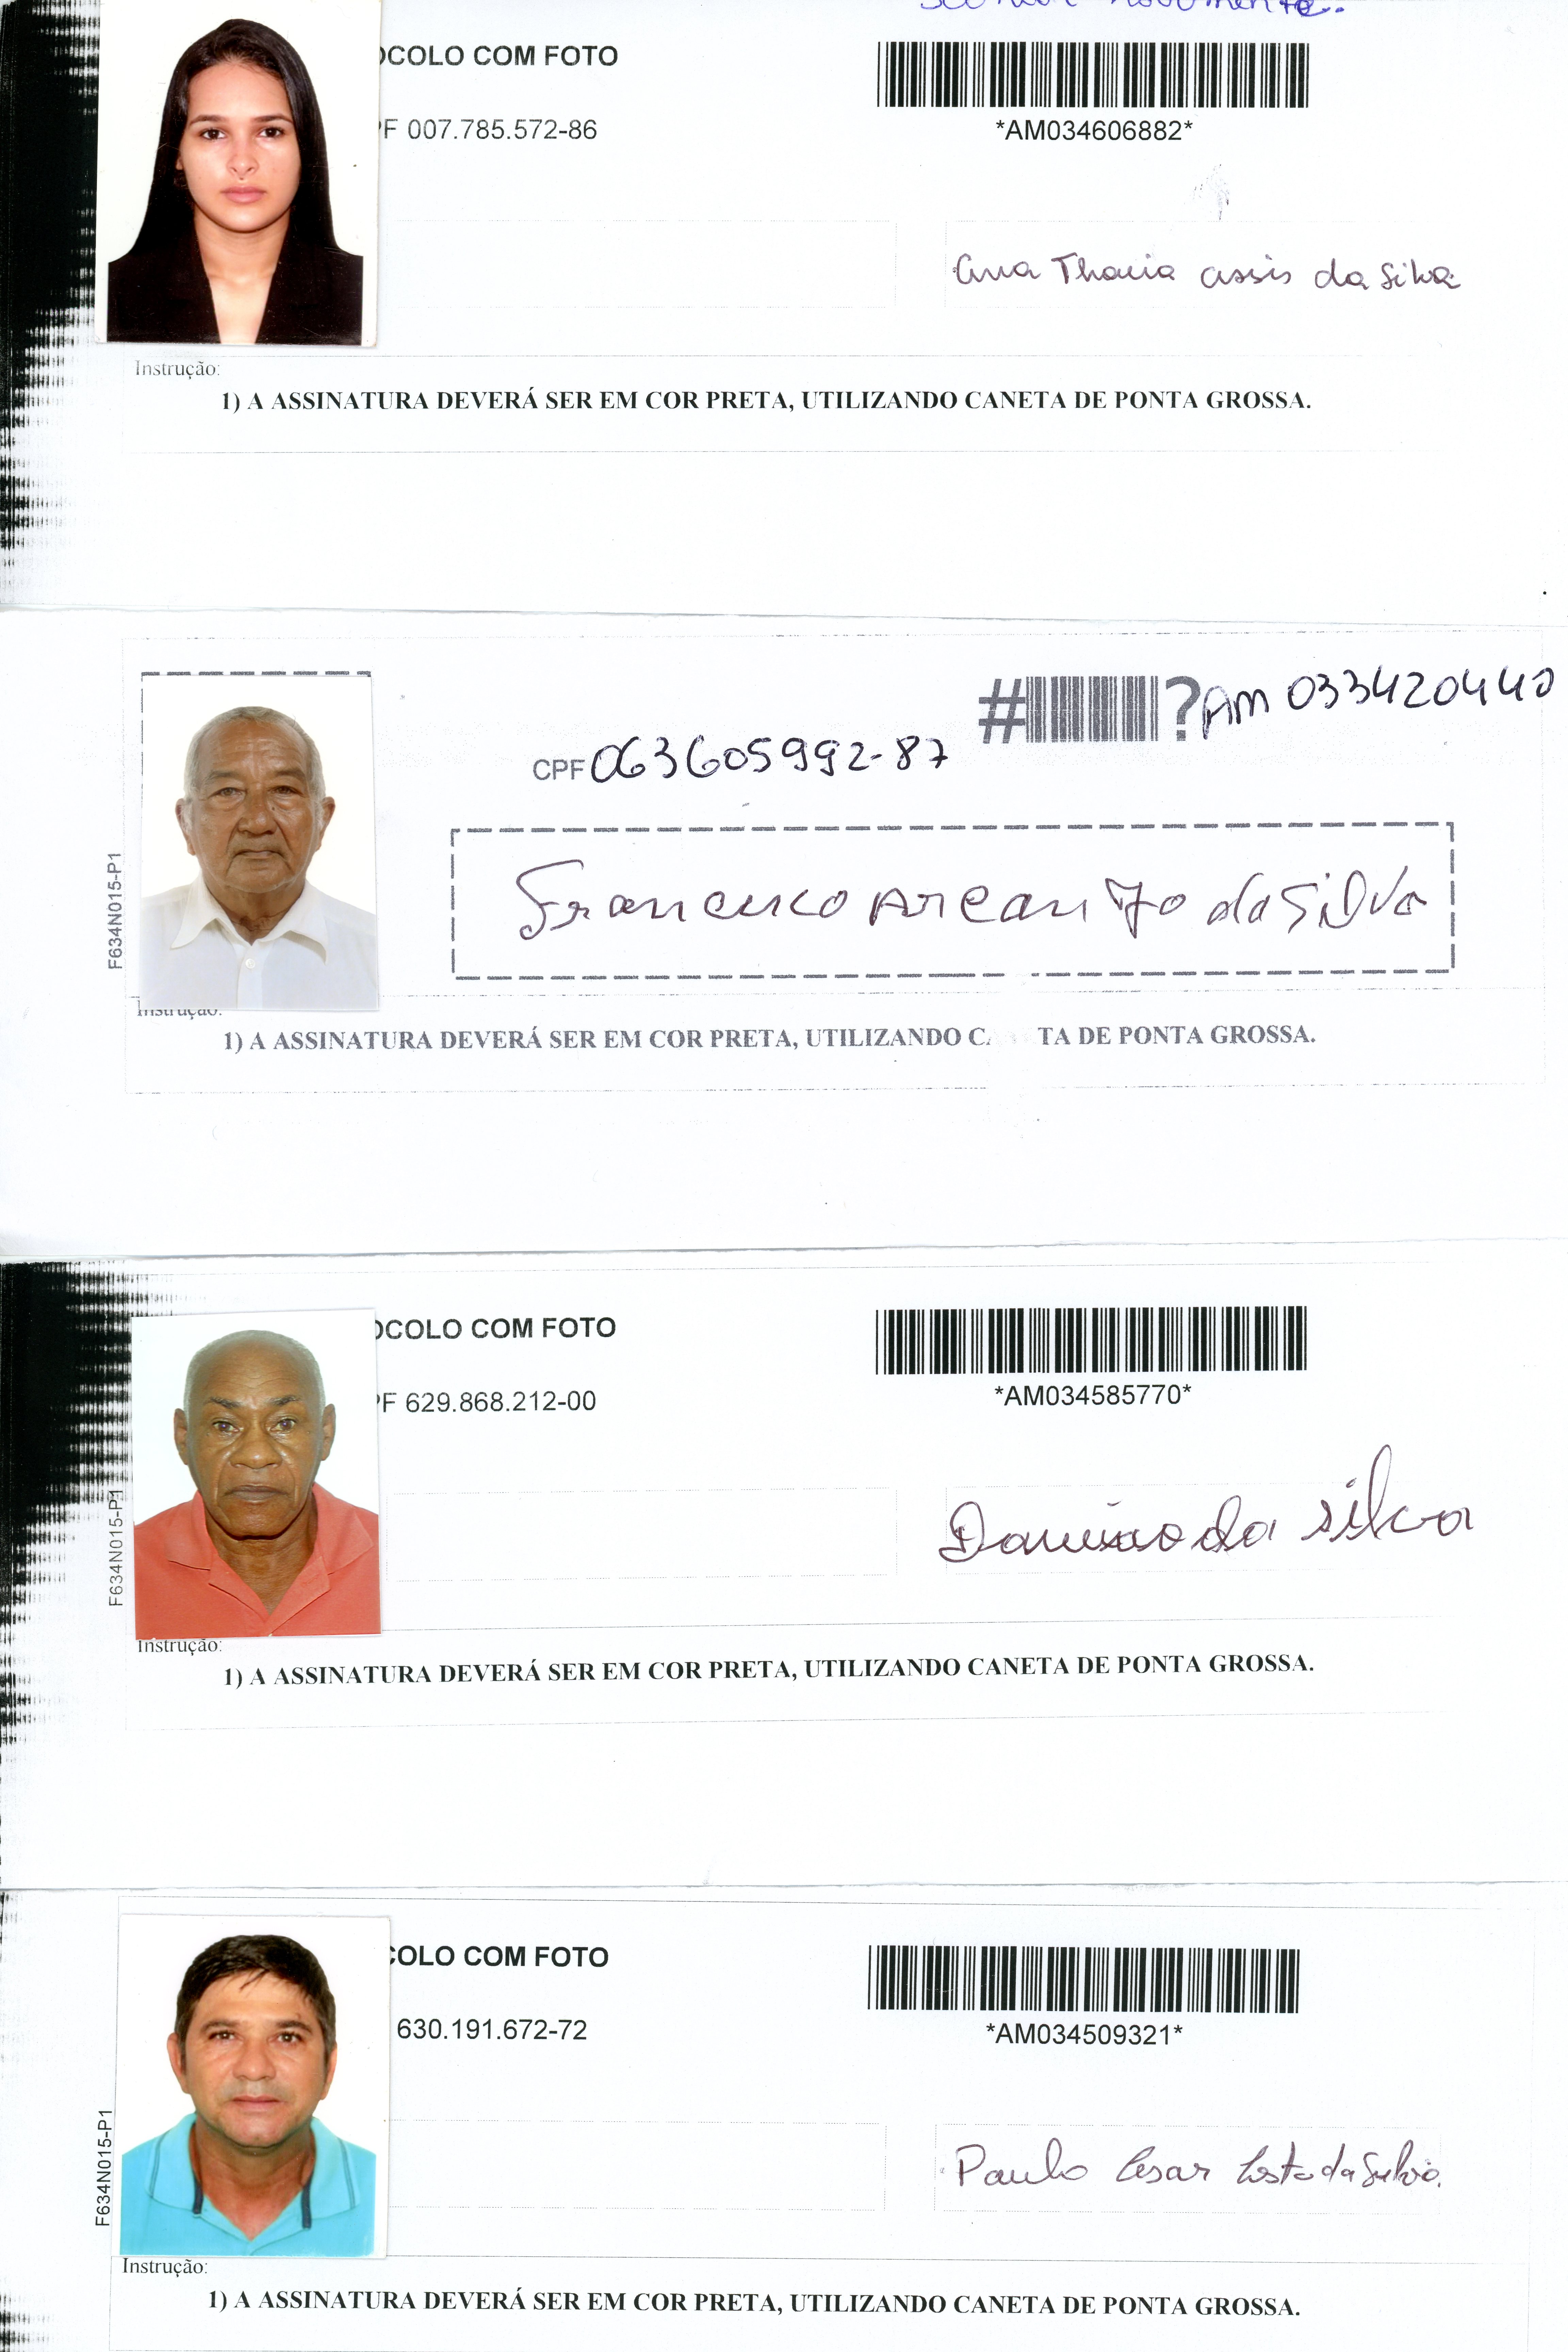 novamente.
OCOLO COM FOTO
PF 007.785.572-86
*AM034606882*
Ana Tharia Assis da Silva
Instrução:
1) A ASSINATURA DEVERÁ SER EM COR PRETA, UTILIZANDO CANETA DE PONTA GROSSA.
#?AM 033420440
CPF 063605992-87
Francisco Arcanjo da Silva
F634N015-P1
Instrução:
1) A ASSINATURA DEVERÁ SER EM COR PRETA, UTILIZANDO C TA DE PONTA GROSSA.
OCOLO COM FOTO
PF 629.868.212-00
*AM034585770*
Damião da Silva
F634N015-P1
Instrução:
1) A ASSINATURA DEVERÁ SER EM COR PRETA, UTILIZANDO CANETA DE PONTA GROSSA.
COLO COM FOTO
630.191.672-72
*AM034509321*
Paulo Cesar Costa da Silva.
F634N015-P1
Instrução:
1) A ASSINATURA DEVERÁ SER EM COR PRETA, UTILIZANDO CANETA DE PONTA GROSSA.